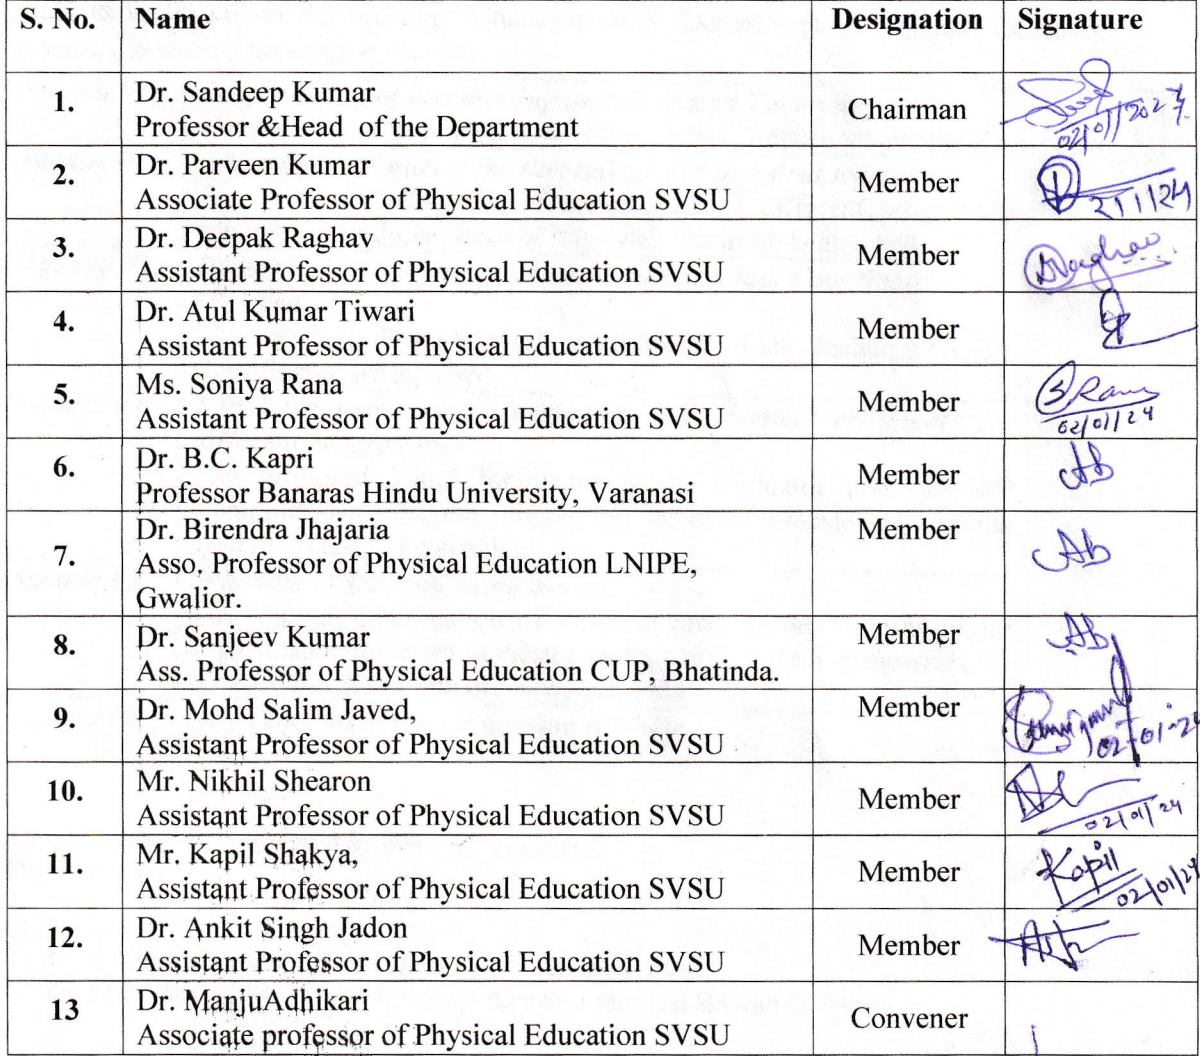 S. No. Name Designation Signature
1. Dr. Sandeep Kumar
Professor &Head of the Department Chairman
02/01/2024
2. Dr. Parveen Kumar
Associate Professor of Physical Education SVSU Member
2/1/24
3. Dr. Deepak Raghav
Assistant Professor of Physical Education SVSU Member DRaghav
4. Dr. Atul Kumar Tiwari
Assistant Professor of Physical Education SVSU Member
5. Ms. Soniya Rana
Assistant Professor of Physical Education SVSU Member SRana
02/01/24
6. Dr. B.C. Kapri
Professor Banaras Hindu University, Varanasi Member Ab
7. Dr. Birendra Jhajaria Member
Asso, Professor of Physical Education LNIPE, Ab
Gwalior.
8. Dr. Sanjeev Kumar Member Ab
Ass. Professor of Physical Education CUP, Bhatinda.
9. Dr. Mohd Salim Javed, Member
Assistant Professor of Physical Education SVSU 02-01-24
10. Mr. Nikhil Shearon
Assistant Professor of Physical Education SVSU Member
02/01/24
11. Mr. Kapil Shakya,
Assistant Professor of Physical Education SVSU Member Kapil
02/01/24
12. Dr. Ankit Singh Jadon
Assistant Professor of Physical Education SVSU Member
13 Dr. ManjuAdhikari
Associate professor of Physical Education SVSU Convener